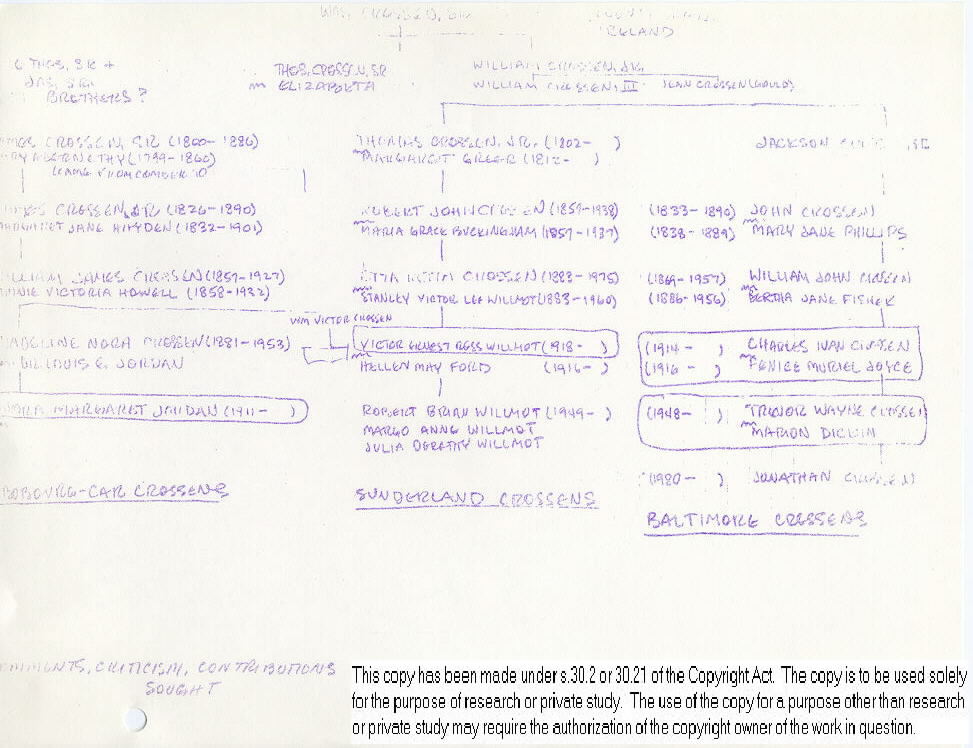 WM. CROSSEN, SR
IRELAND
THOS, SR +
JAS, SR.
BROTHERS?
THOS, CROSSEN, SR
m ELIZABETH
WILLIAM CROSSEN, JR.
WILLIAM CROSSEN, III JEAN CROSSEN (GOULD)
CROSSEN, SR (1800-1886)
(1799-1860)
CAME FROM COMBER
CROSSEN, JR (1826-1890)
JANE HAYDEN (1832-1901)
JAMES CROSSEN (1857-1927)
VICTORIA HOWELL (1858-1932)
NORA CROSSEN (1881-1953)
LOUIS E. JORDAN
NORA MARGARET JORDAN (1911- )
COBOURG-CAR CROSSENS
THOMAS CROSSEN, JR. (1802- )
m MARGARET GREER (1812- )
ROBERT JOHN CROSSEN (1859-1938)
m MARIA GRACE BUCKINGHAM (1857-1937)
ETTA CROSSEN (1883-1975)
m STANLEY VICTOR LEE WILLMOT (1883-1960)
WM VICTOR CROSSEN
VICTOR ERNEST ROSS WILLMOT (1918- )
m HELLEN MAY FORD (1916- )
ROBERT BRIAN WILLMOT (1949- )
MARGO ANNE WILLMOT
JULIA DOROTHY WILLMOT
SUNDERLAND CROSSENS
JACKSON SR
(1833-1890) JOHN CROSSEN
(1838-1889) m MARY JANE PHILLIPS
(1869-1957) WILLIAM JOHN CROSSEN
(1886-1956) m BERTHA JANE FISHER
(1914- ) CHARLES IVAN CROSSEN
(1916- ) m MURIEL JOYCE
(1948- ) TREVOR WAYNE CROSSEN
m MARION
(1980- ) JONATHAN CROSSEN
BALTIMORE CROSSENS
COMMENTS, CRITICISM, CONTRIBUTIONS
SOUGHT
This copy has been made under s.30.2 or 30.21 of the Copyright Act. The copy is to be used solely
for the purpose of research or private study. The use of the copy for a purpose other than research
or private study may require the authorization of the copyright owner of the work in question.